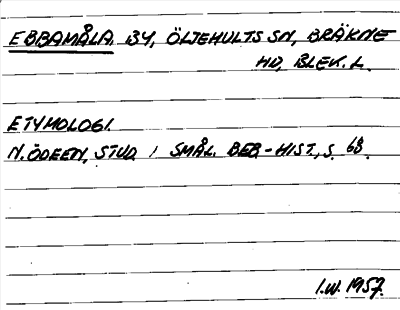 EBBAMÅLA BY, ÖLJEHULTS SN, BRÄKNE
HD, BLEK. L.
ETYMOLOGI.
N. ÖDEEN, STUD. I SMÅL. BEB-HIST., S. 68.
I.W. 1957.